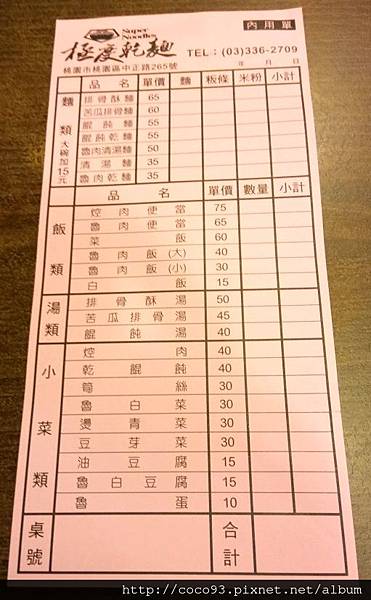 內用單
Super Noodles
極度乾麵
TEL:(03)336-2709
桃園市桃園區中正路265號
年 月 日
品名 單價 麵 粄條 米粉 小計
麵類 大碗加15元
排骨酥麵 65
苦瓜排骨麵 60
餛飩麵 55
餛飩乾麵 55
魯肉清湯麵 50
清湯麵 35
魯肉乾麵 35
品名 單價 數量 小計
飯類
焢肉便當 75
魯肉便當 65
菜飯 60
魯肉飯(大) 40
魯肉飯(小) 30
白飯 15
湯類
排骨酥湯 50
苦瓜排骨湯 45
餛飩湯 40
小菜類
焢肉 40
乾餛飩 40
筍絲 30
魯白菜 30
燙青菜 30
豆芽菜 30
油豆腐 15
魯白豆腐 15
魯蛋 10
桌號 合計
http://coco93.pixnet.net/album